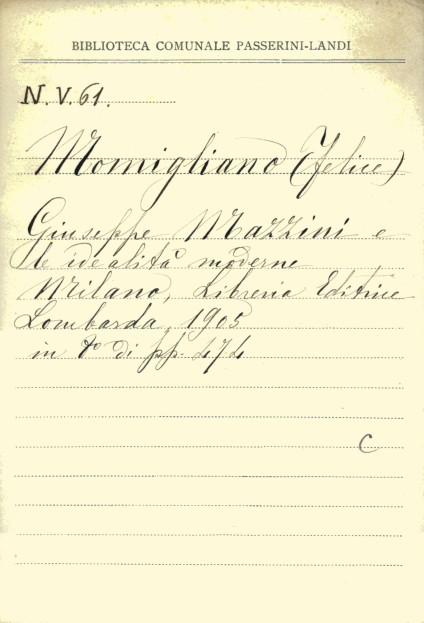 BIBLIOTECA COMUNALE PASSERINI-LANDI
N.V.61.
Momigliano (Felice)
Giuseppe Mazzini e
le idealità moderne
Milano, Libreria Editrice
Lombarda, 1905
in 8° di pp. 474
C